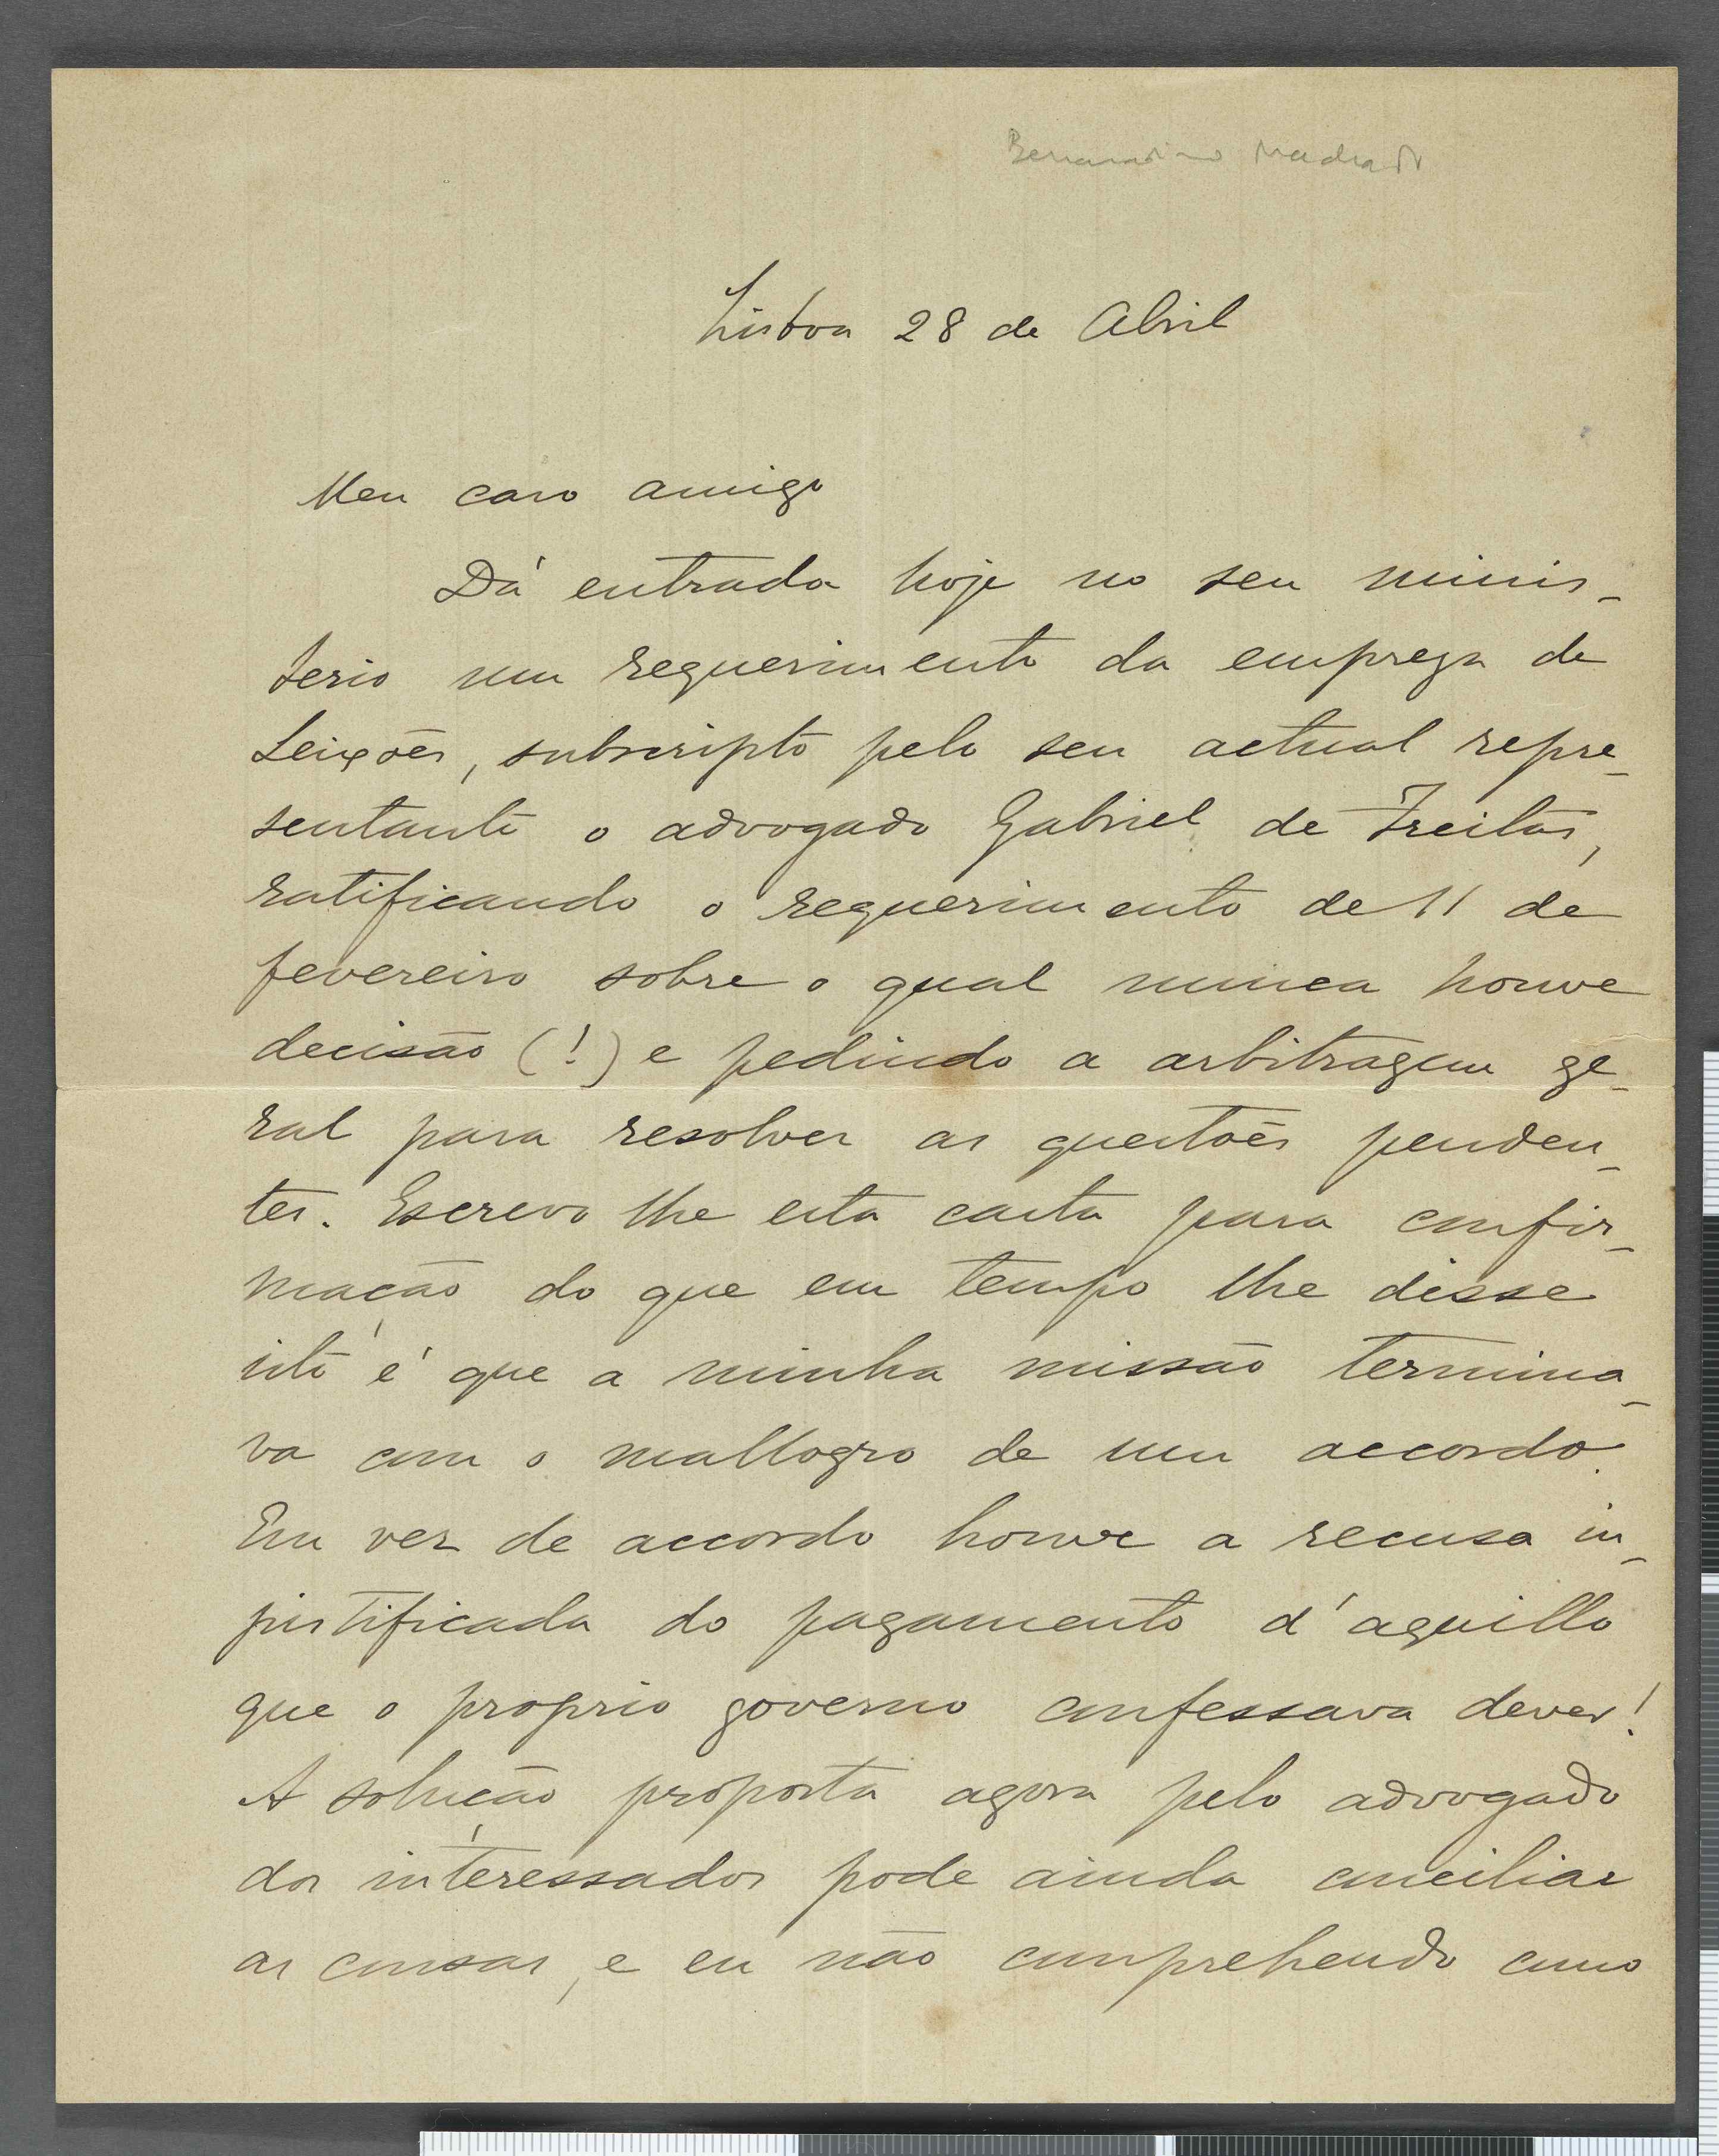 Bernardino Machado
Lisboa 28 de Abril
Meu caro amigo
Dá entrada hoje no seu minis-
terio um requerimento da empreza de
Leixões, subscripto pelo seu actual repre-
sentante o advogado Gabriel de Freitas,
ratificando o requerimento de 11 de
fevereiro sobre o qual nunca houve
decisão (!) e pedindo a arbitragem ge-
ral para resolver as questões penden-
tes. Escrevo lhe esta carta para confir-
mação do que em tempo lhe disse
isto é que a minha missão termina-
va com o mallogro de um accordo.
Em vez de accordo houve a recusa in-
justificada do pagamento d'aquillo
que o proprio governo confessava dever!
A solução proposta agora pelo advogado
dos interessados pode ainda conciliar
as cousas, e eu não comprehendo como